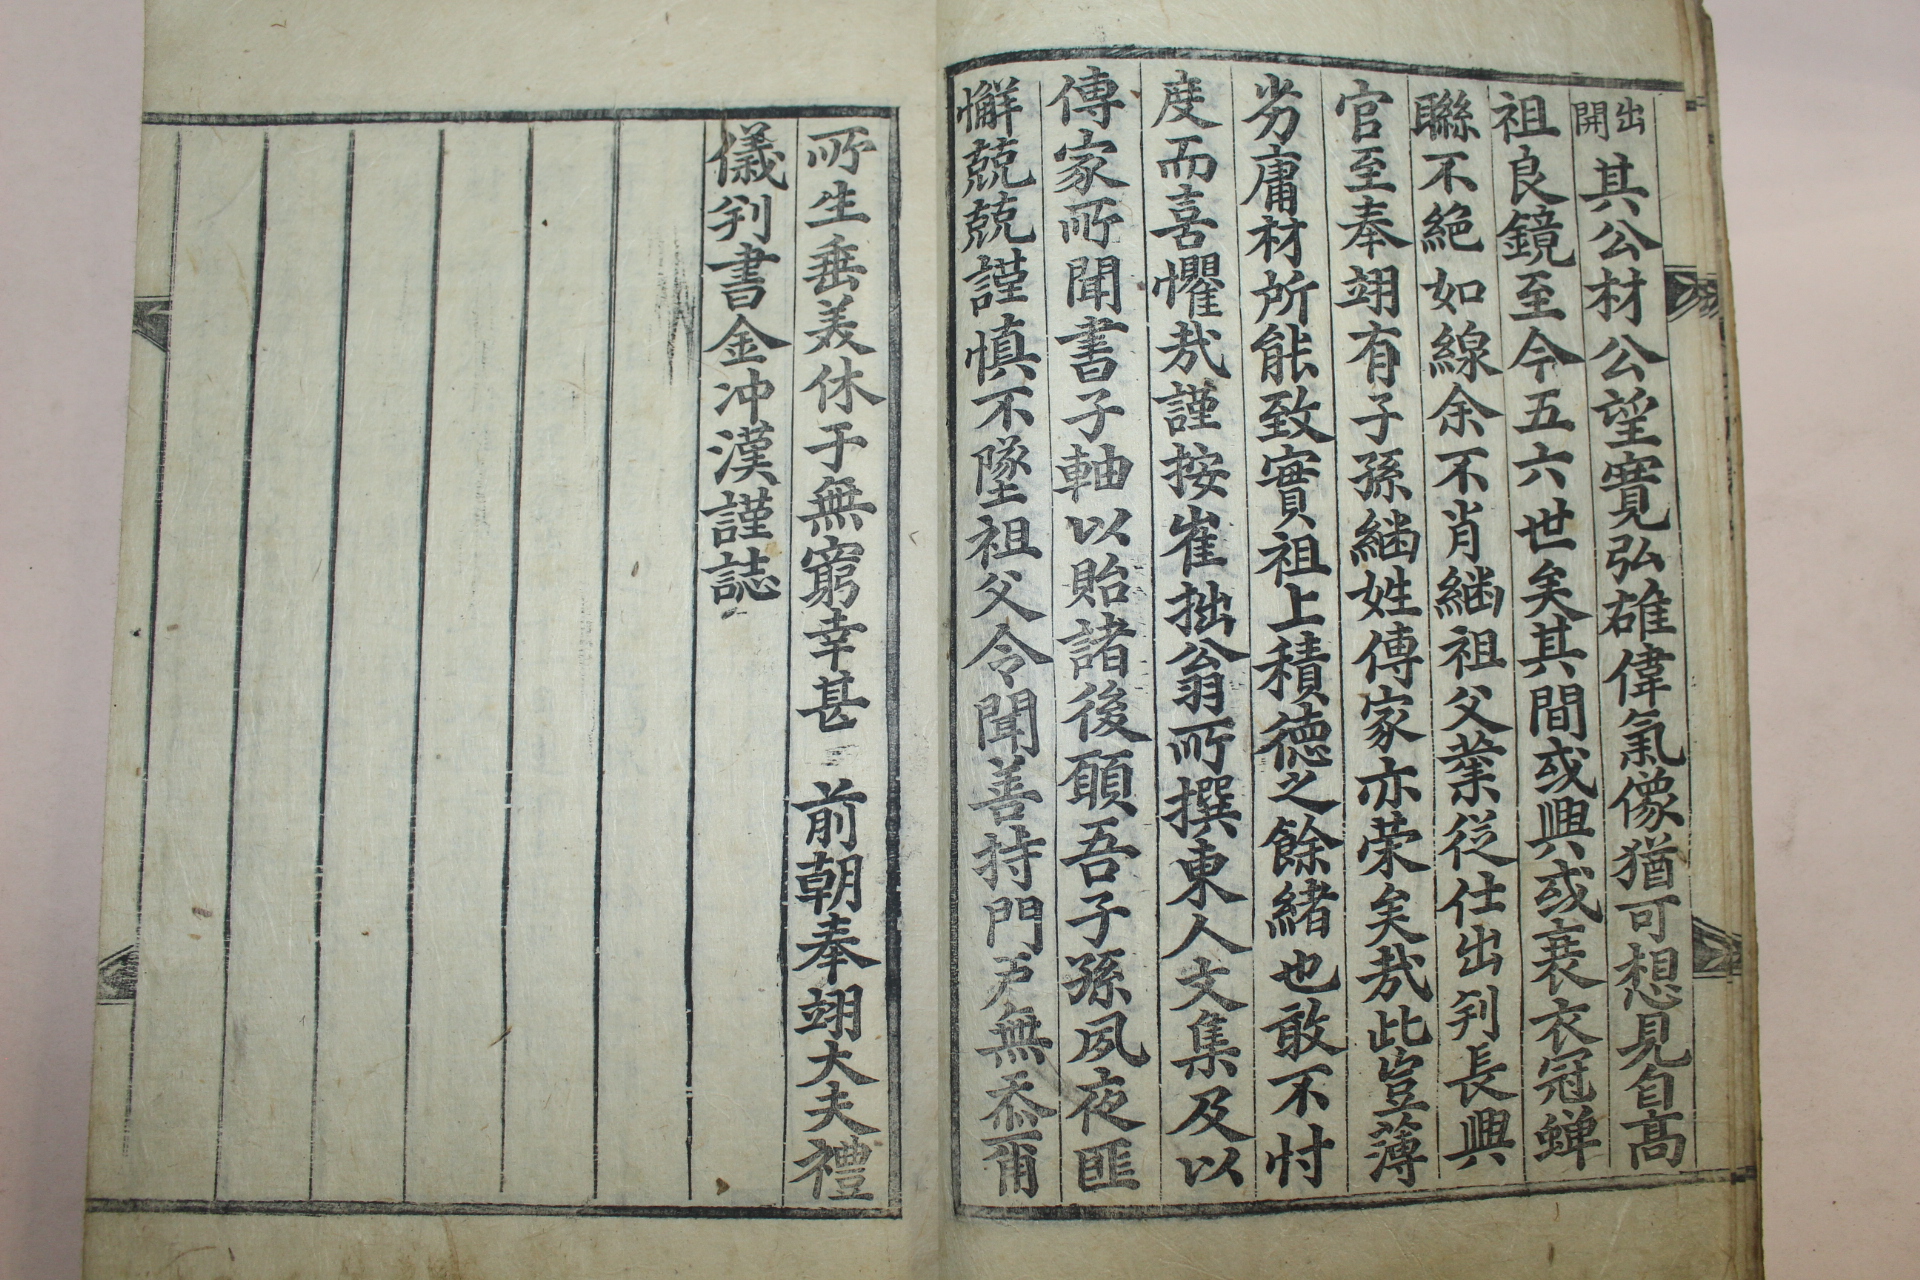 出開其公材公望寬弘雄偉氣像猶可想見自高
祖良鏡至今五六世矣其間或興或衰衣冠蟬
聯不絶如線余不肖繼祖父業從仕出判長興
官至奉翊有子孫繼姓傳家亦荣矣哉此豈薄
劣庸材所能致實祖上積德之餘緖也敢不忖
度而喜懼哉謹按崔拙翁所撰東人文集及以
傳家所聞書子軸以貽諸後願吾子孫夙夜匪
懈兢兢謹慎不墜祖父令聞善持門户無忝爾
所生垂美休于無窮幸甚 前朝奉翊大夫禮
儀判書金冲漢謹誌